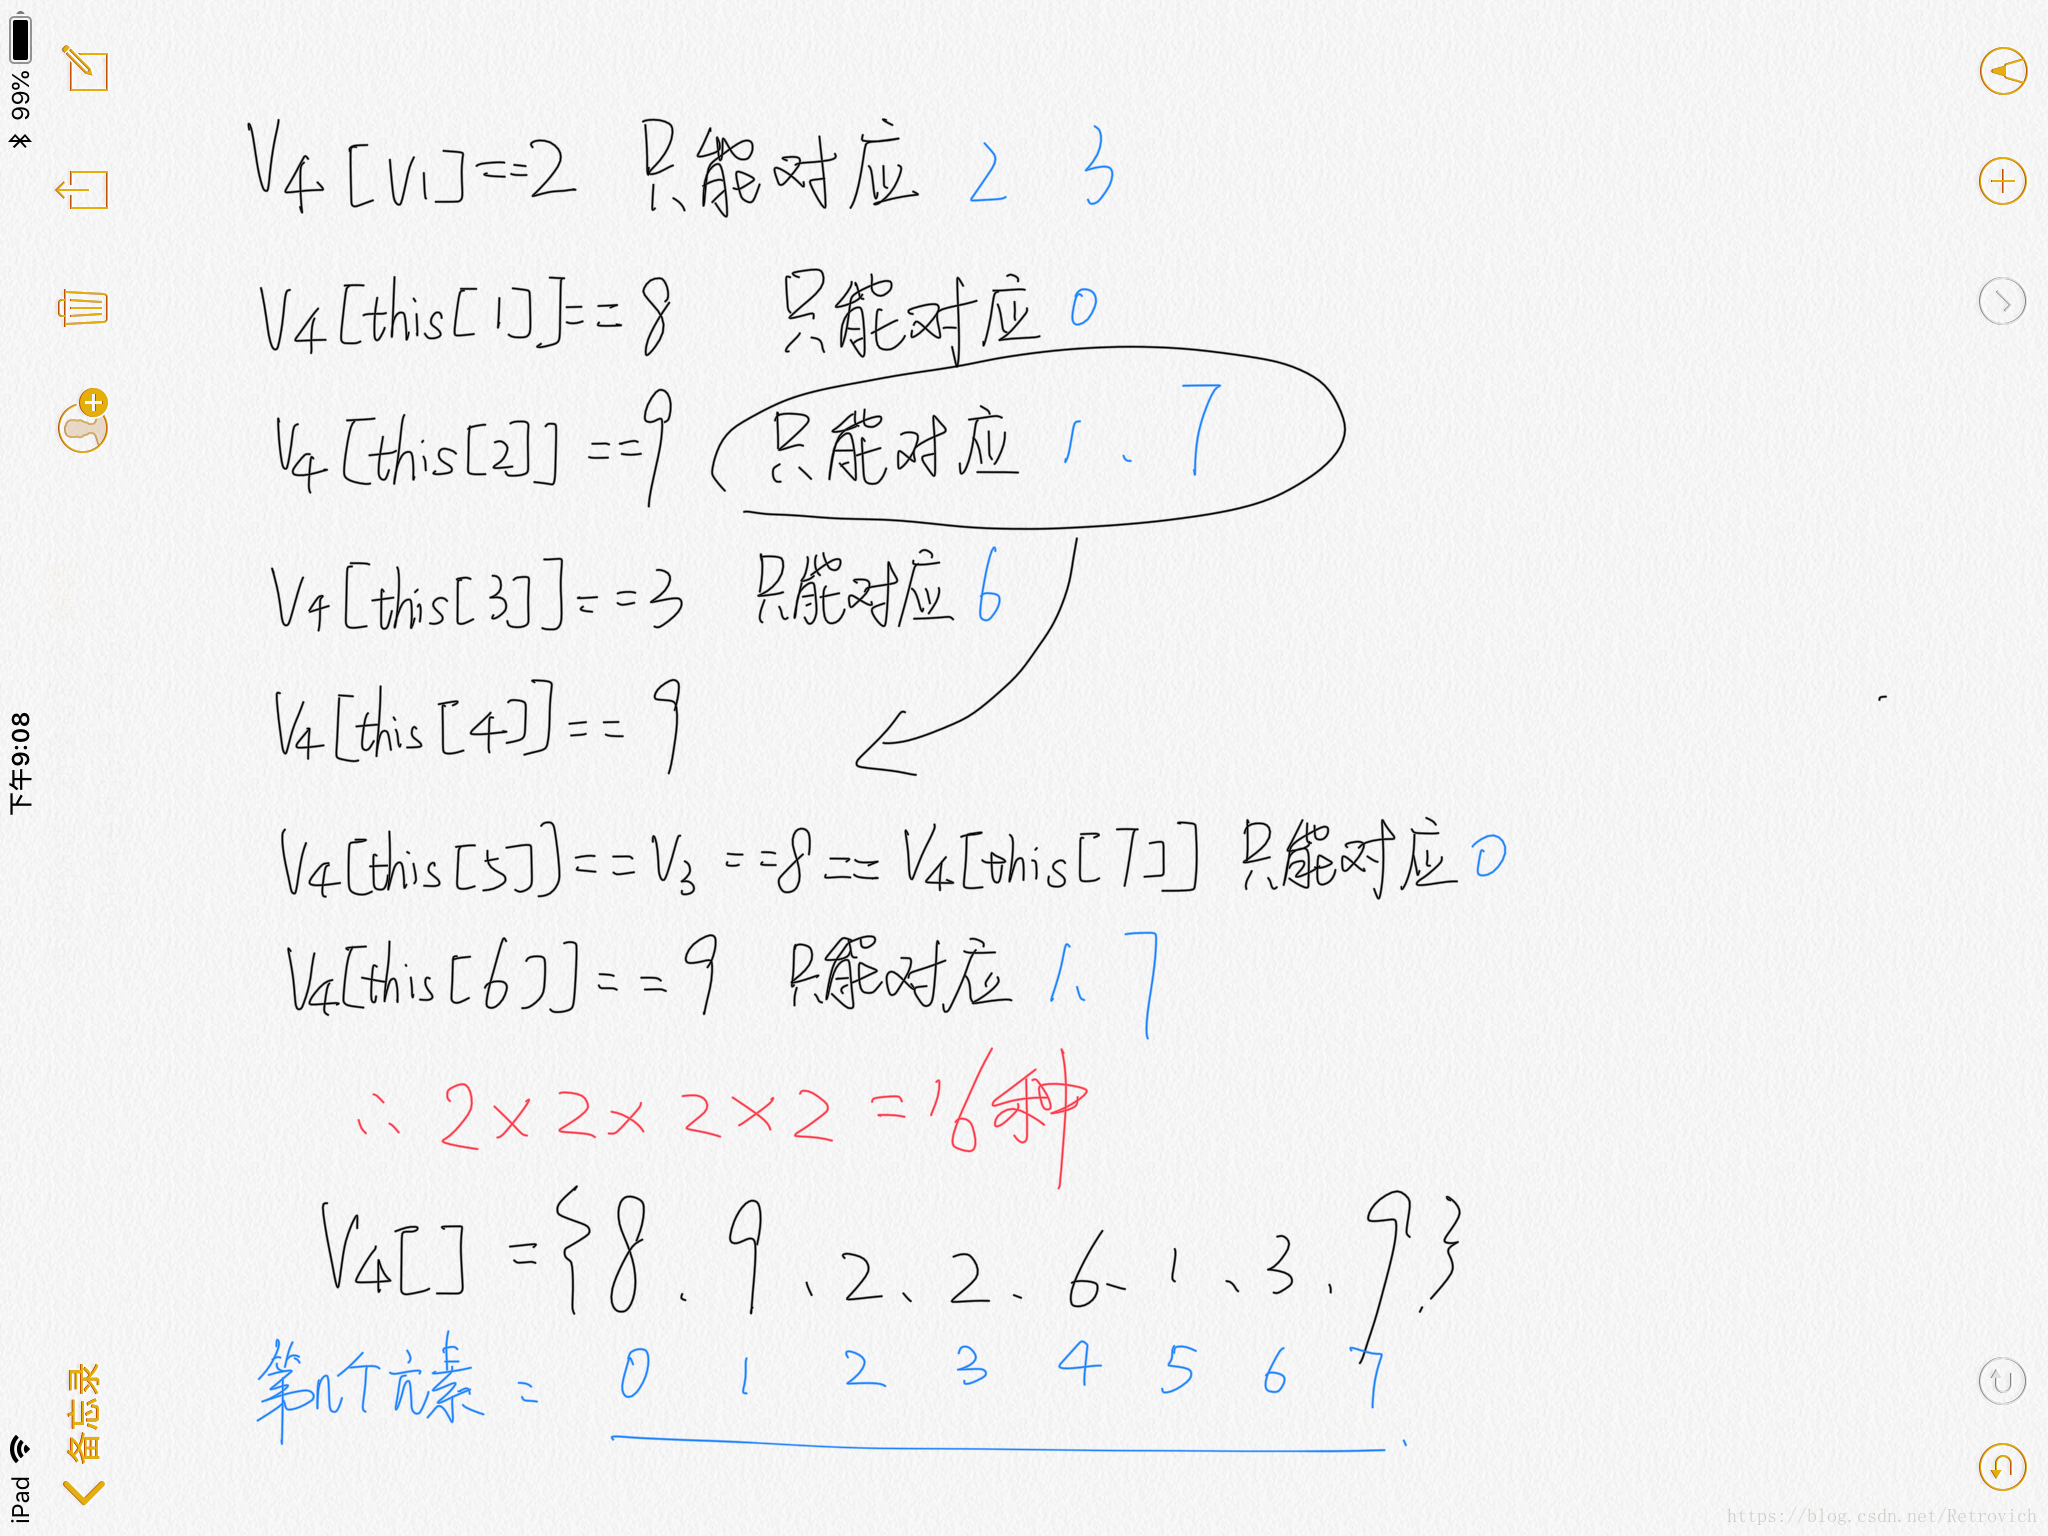 V4[V1]==2 只能对应 2 3
V4[this[1]]==8 只能对应 0
V4[this[2]]==9 只能对应 1、7
V4[this[3]]==3 只能对应 6
V4[this[4]]==9
V4[this[5]]==V3==8==V4[this[7]] 只能对应 0
V4[this[6]]==9 只能对应 1、7
∴ 2×2×2×2=16种
V4[]={8、9、2、2、6、1、3、9}
第n个元素= 0 1 2 3 4 5 6 7
iPad
下午9:08
99%
备忘录
https://blog.csdn.net/Retrovich